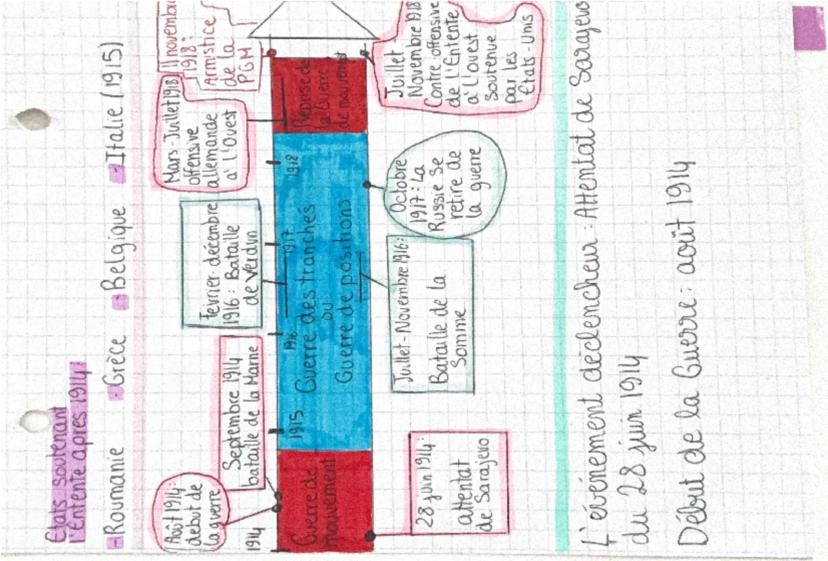 Etats soutenant
l'Entente après 1914:
- Roumanie - Grèce - Belgique - Italie (1915)
Août 1914:
debut de
la guerre
Septembre 1914
bataille de la Marne
Février-décembre
1916: Bataille
de Verdun
Mars-Juillet 1918
offensive
allemande
à l'Ouest
11 novembre
1918:
Armistice
de la
PGM
1914
1915
1916
1917
1918
Guerre de
mouvement
Guerre des tranches
ou
Guerre de positions
Reprise de
la Guerre
de mouvement
28 juin 1914:
attentat
de Sarajevo
Juillet-Novembre 1916:
Bataille de la
Somme
Octobre
1917: La
Russie se
retire de
la guerre
Juillet
Novembre 1918
Contre-offensive
de l'Entente
à l'Ouest
Soutenue
par les
Etats-Unis
L'événement déclencheur: Attentat de Sarajevo
du 28 juin 1914
Début de la Guerre: août 1914